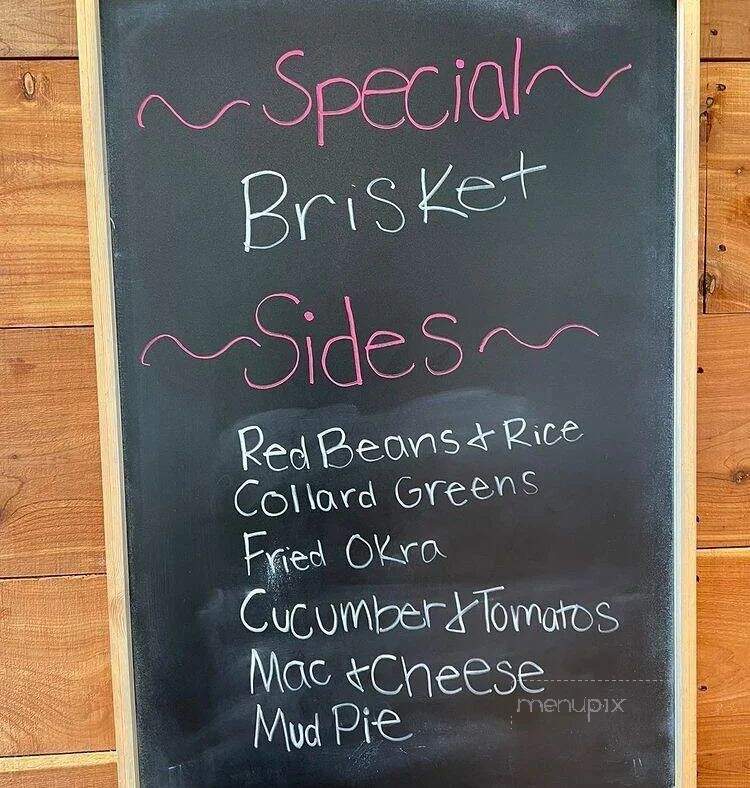 ~Special~
Brisket
~Sides~
Red Beans & Rice
Collard Greens
Fried Okra
Cucumber & Tomatos
Mac & Cheese
menupix
Mud Pie